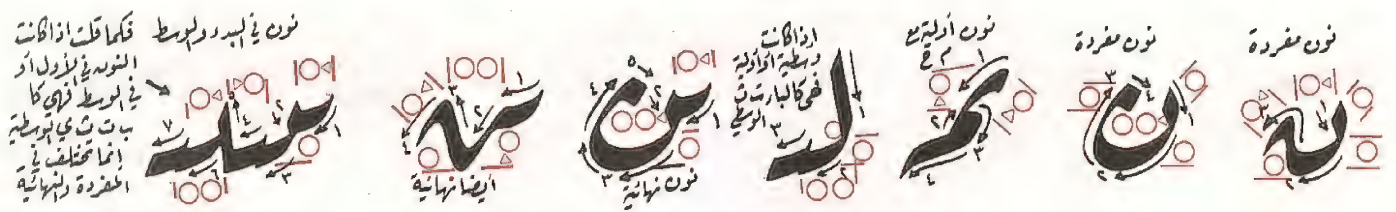 نون مفردة
نون مفردة
نون أولية مع
م ح
اذا كانت
وسطية أو أولية
فهي كالباء ت ث
الوسطى
نون نهائية
أيضا نهائية
نون في البدء والوسط
فكما قلت اذا كانت
النون في الأول أو
في الوسط فهي كا
ب ت ث ي الوسطية
إنما تختلف في
المفردة والنهائية